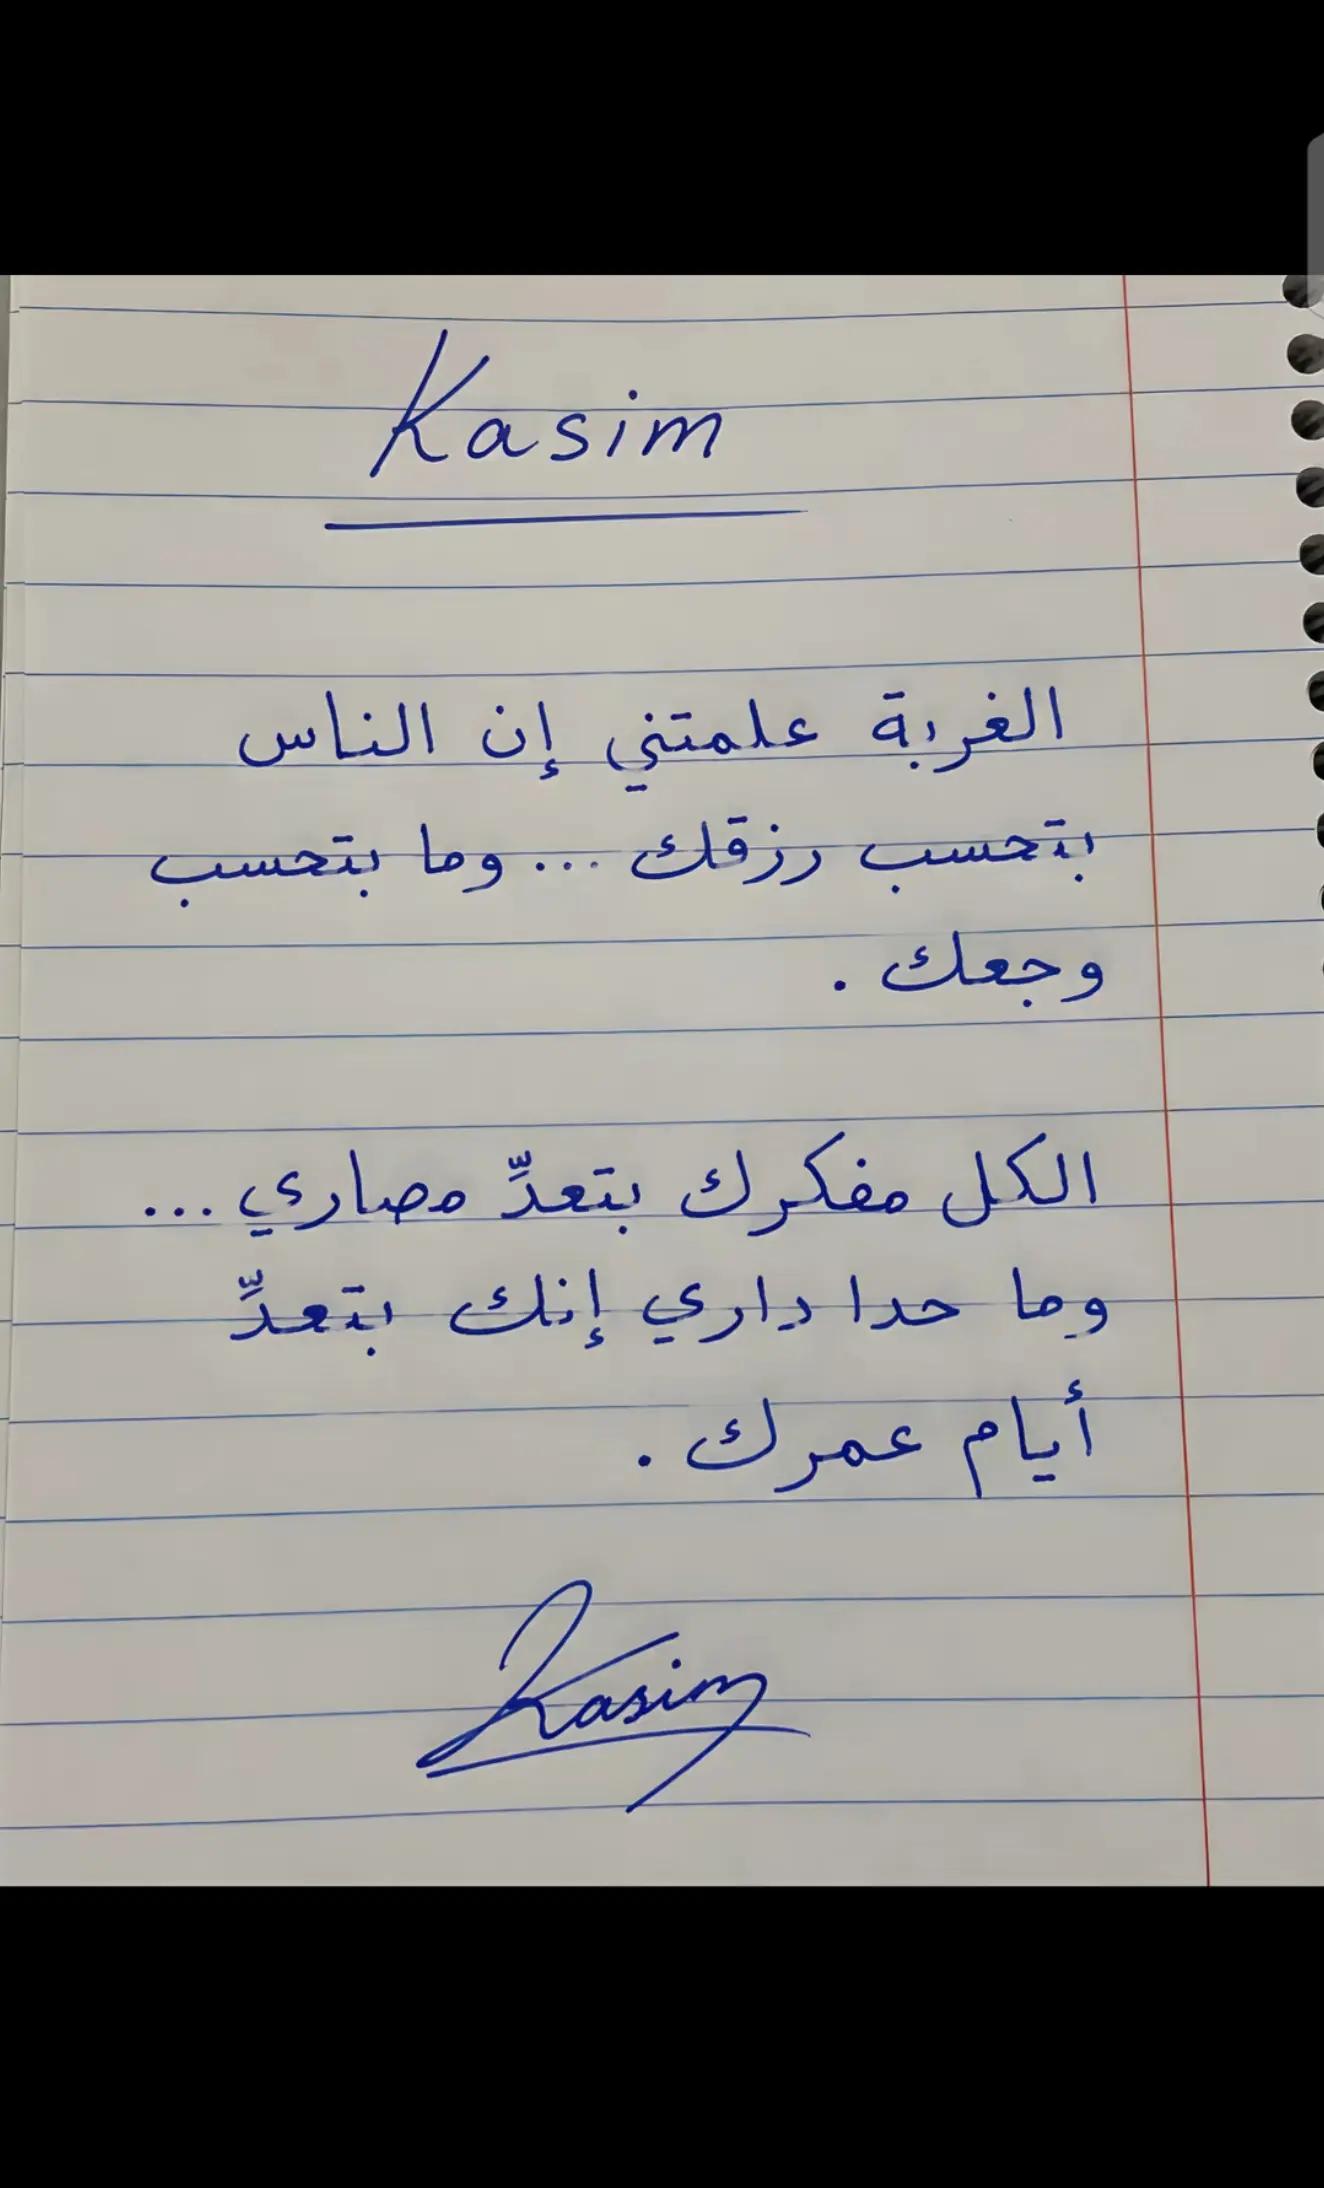 Kasim
الغربة علمتني إن الناس
بتحسب رزقك ... وما بتحسب
وجعك .
الكل مفكرك بتعدِّ مصاري ...
وما حدا داري إنك بتعدِّ
أيام عمرك .
Kasim